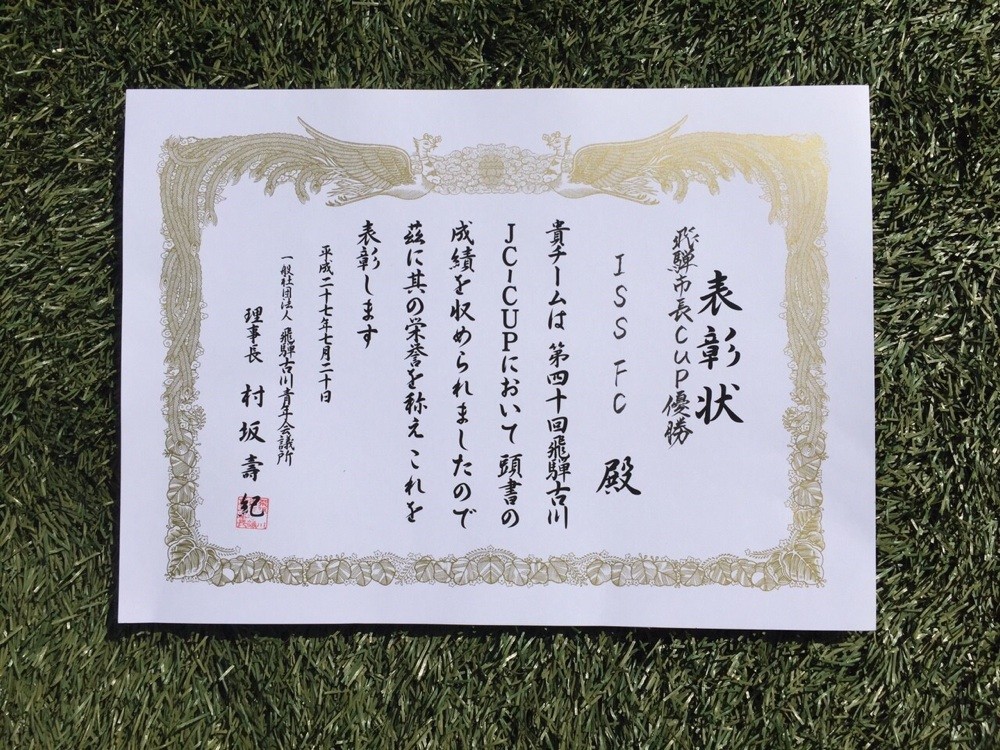 表彰状
飛騨市長CUP優勝
ISSFC 殿
貴チームは 第四十回飛騨古川
JC-CUPにおいて 頭書の
成績を収められましたので
茲に其の栄誉を称え これを
表彰します
平成二十七年七月二十日
一般社団法人 飛騨古川青年会議所
理事長 村坂壽紀